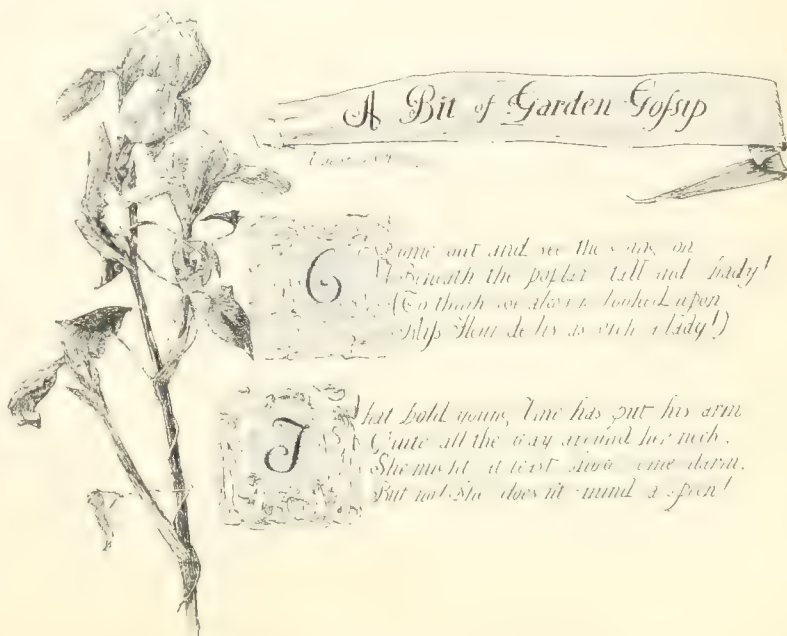 A Bit of Garden Gossip
Come out and see the on
Beneath the poplar tall and shady!
(To think we always looked upon
Miss Fleur de lis as such a lady!)
That bold young Vine has put his arm
Quite all the way around her neck.
She might at least show some alarm.
But no! She doesn't mind a speck!